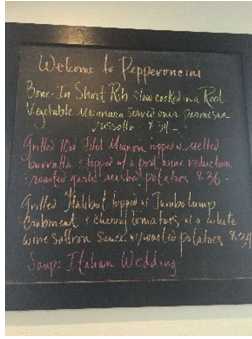 Welcome to Pepperoncini
Bone-In Short Rib slow cooked in a Root
Vegetable Marinara served over parmesan
risotto $34-
Grilled 10oz Filet Mignon topped w/ melted
burratta & topped w/ a port wine reduction
roasted garlic mashed potatoes $36-
Grilled Halibut topped w/ Jumbo lump
Crabmeat & cherry tomatoes w/ a white
wine Saffron Sauce w/ roasted potatoes
Soup: Italian Wedding